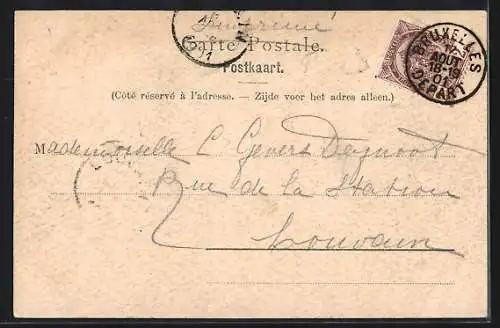 Carte Postale.
Postkaart.
BRUXELLES
AOUT
18-19
01
DÉPART
(Côté réservé à l'adresse. – Zijde voor het adres alleen.)
Mademoiselle C Gevers Deynoot
Rue de la Station
Louvain